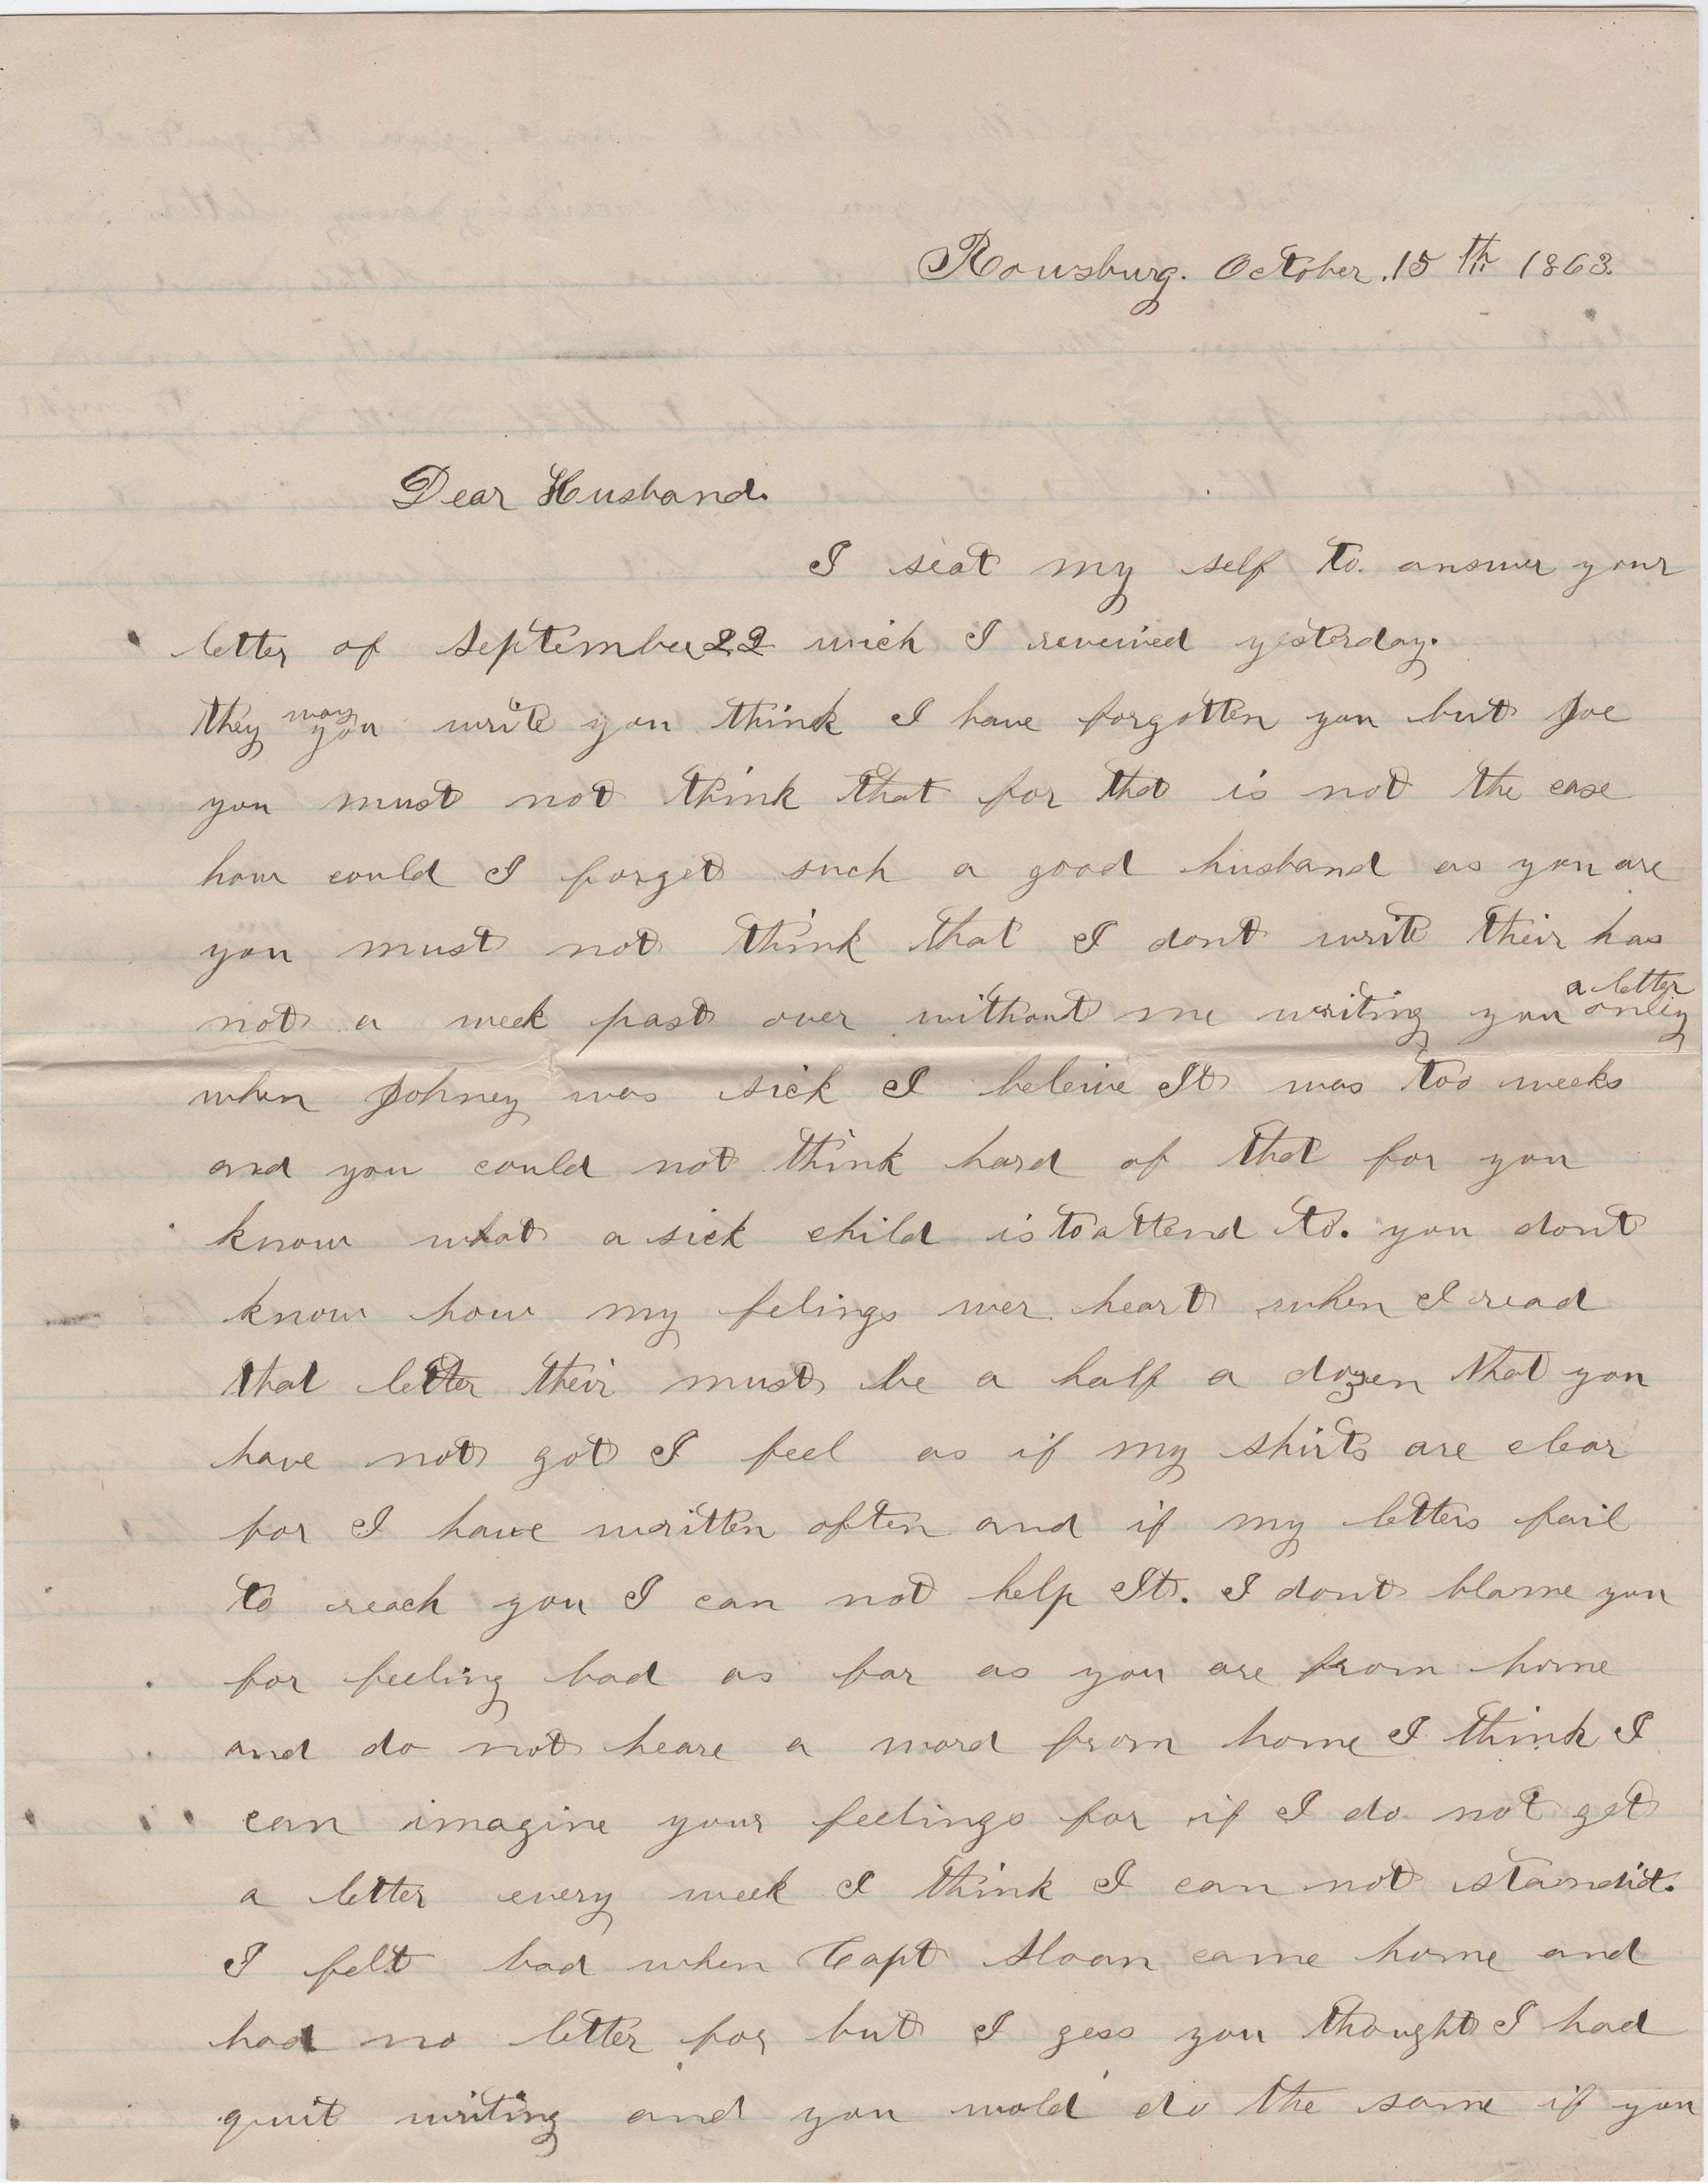 Rowsburg. October. 15th 1863.
Dear Husband.
I seat my self to answer your
letter of September 22 wich I received yesterday.
they way you write you think I have forgotten you but Joe
you must not think that for that is not the case
how could I forget such a good husband as you are
you must not think that I dont write their has
not a week past over without me writing you a letter onley
when Johney was sick I beleive It was too weeks
and you could not think hard of that for you
know what a sick child is to attend to. you dont
know how my felings wer heart when I read
that letter their must be a half a dozen that you
have not got I feel as if my shirts are clear
for I have written often and if my letters fail
to reach you I can not help It. I dont blame you
for feeling bad as far as you are from home
and do not heare a word from home I think I
can imagine your feelings for if I do not get
a letter every week I think I can not stand it.
I felt bad when Capt Sloan came home and
had no letter for but I gess you thought I had
quit writing and you wold do the same if you